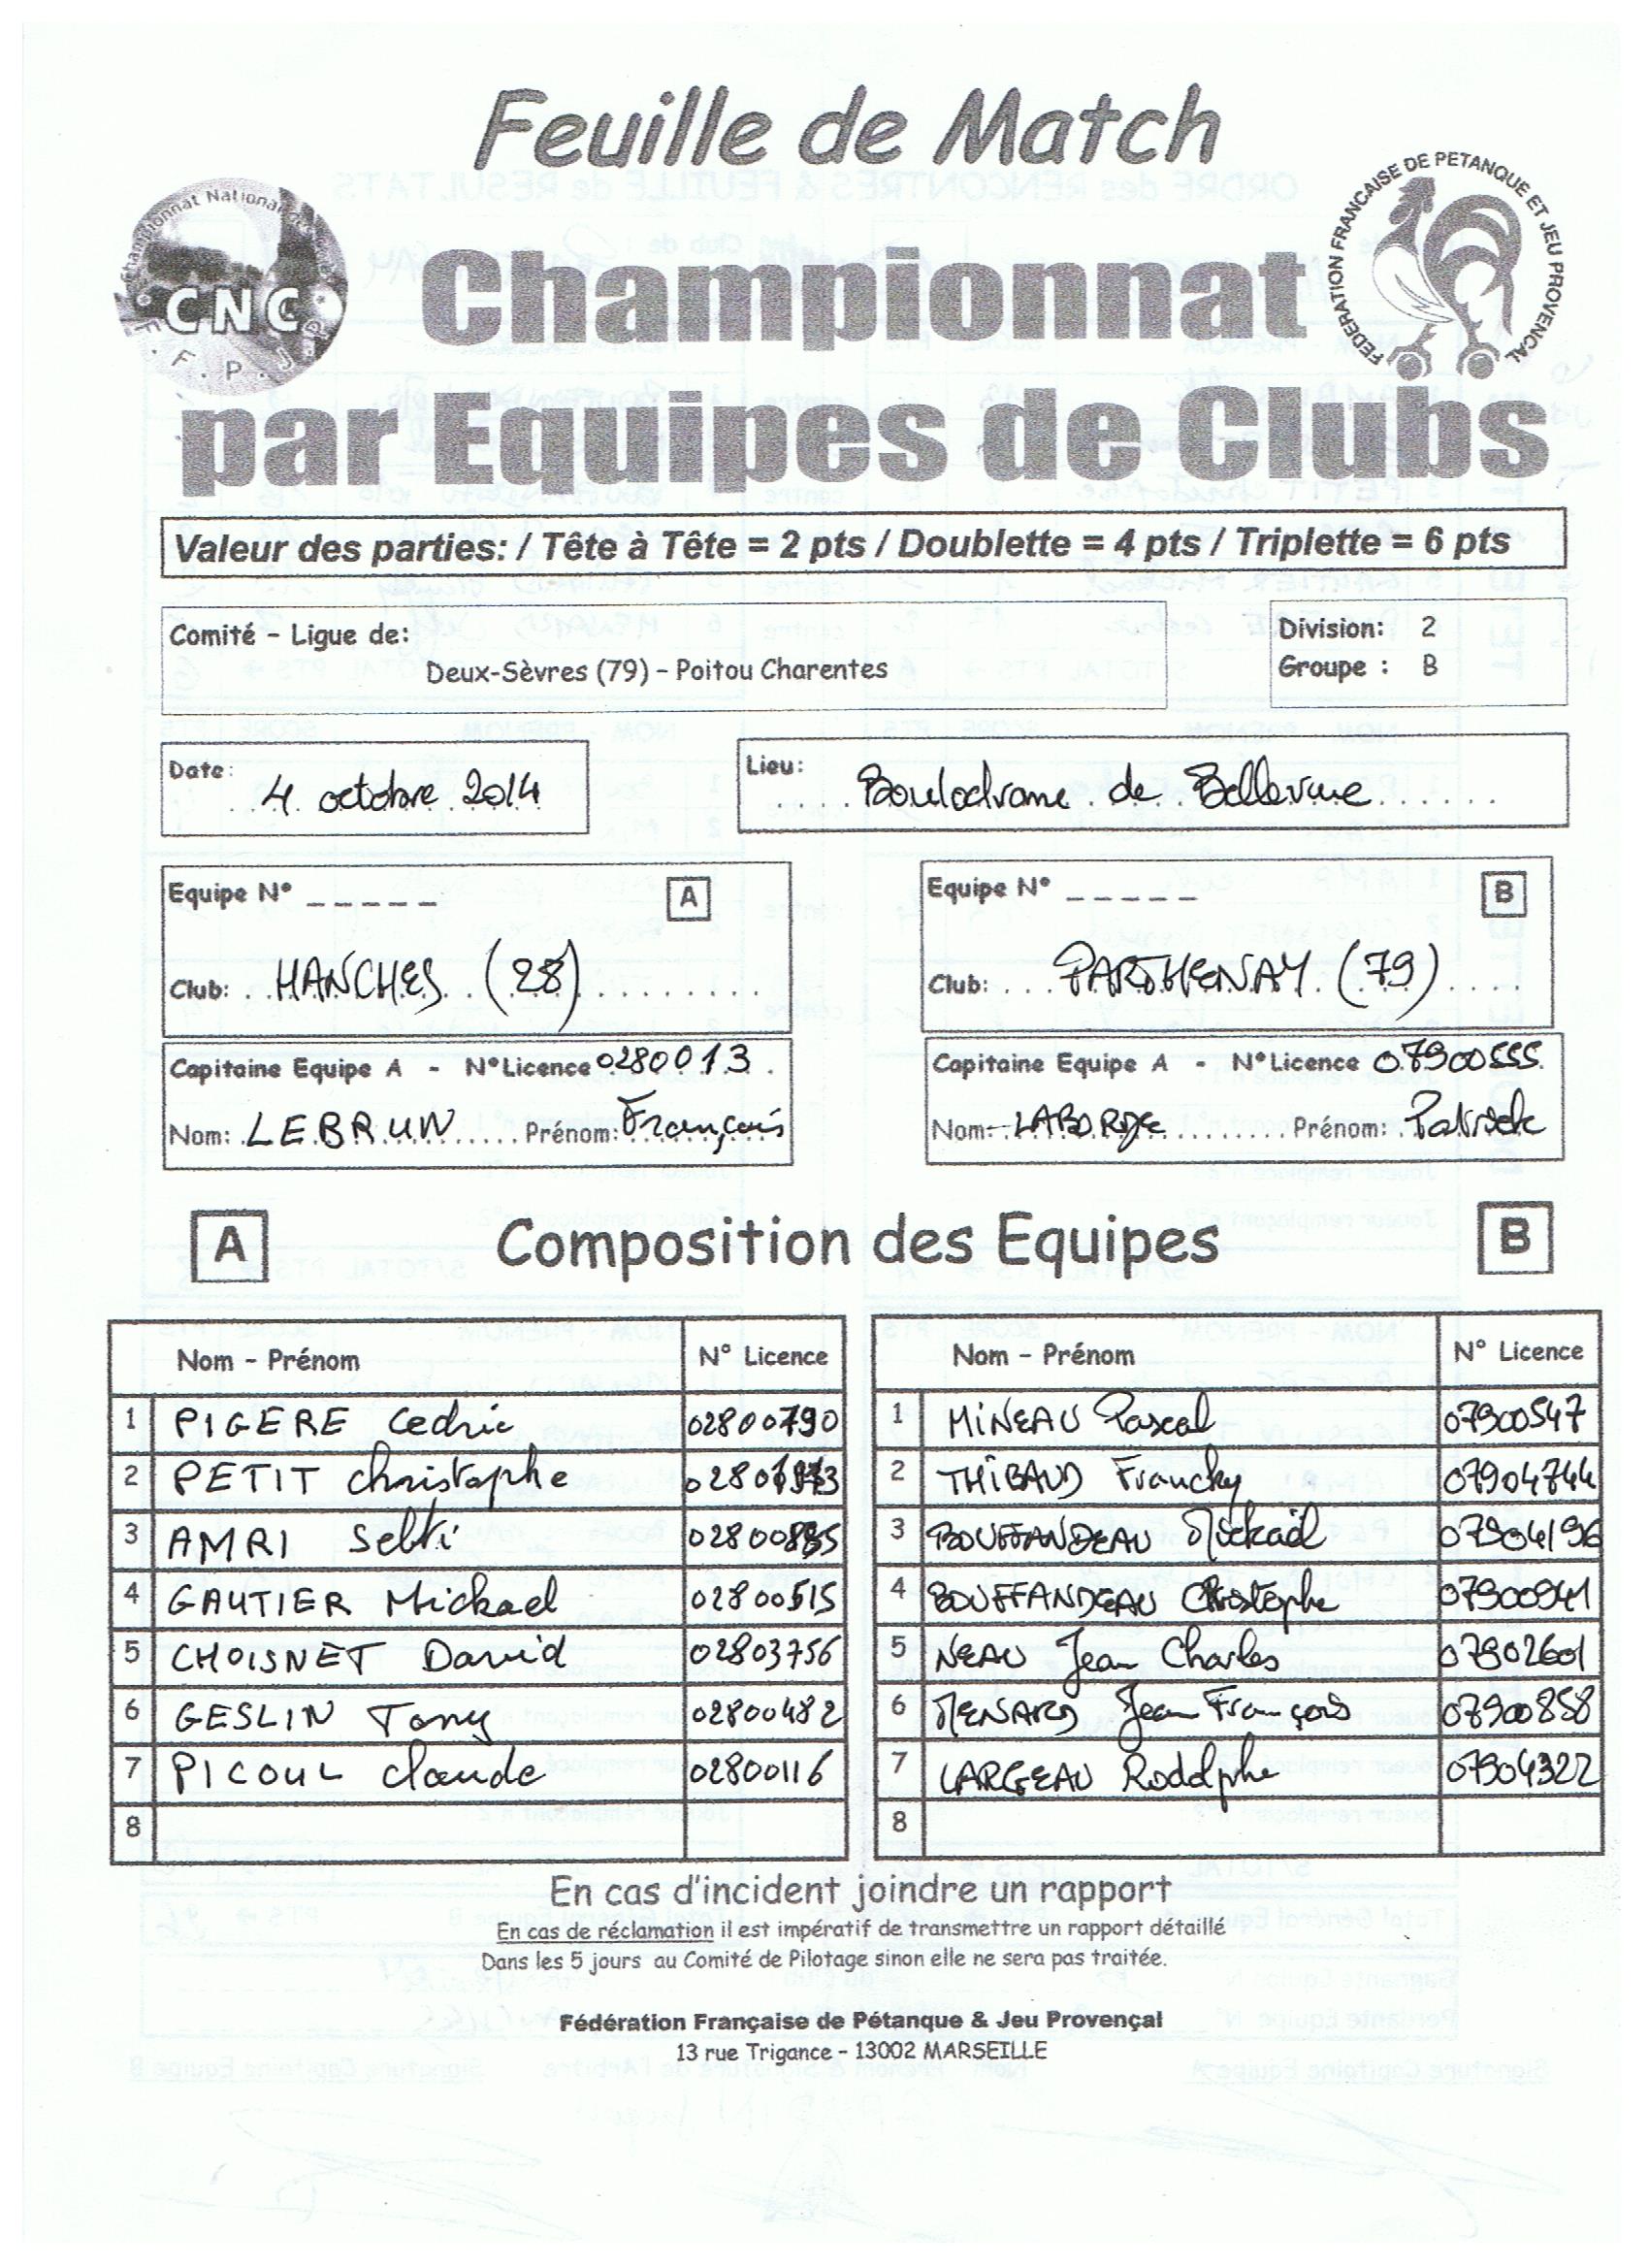 Feuille de Match
Championnat National des
CNC
F. F. P. J. P
FEDERATION FRANCAISE DE PETANQUE ET JEU PROVENCAL
Championnat
par Equipes de Clubs
Valeur des parties: / Tête à Tête = 2 pts / Doublette = 4 pts / Triplette = 6 pts
Comité - Ligue de:
Deux-Sèvres (79) - Poitou Charentes
Division: 2
Groupe : B
Date: 4 octobre 2014
Lieu: Boulodrome de Bellevue
Equipe N° _ _ _ _ _ A
Club: HANCHES (28)
Capitaine Equipe A - N°Licence 0280013
Nom: LEBRUN Prénom: François
Equipe N° _ _ _ _ _ B
Club: PARTHENAY (79)
Capitaine Equipe A - N°Licence 07900555
Nom: LABORDE Prénom: Patrick
A Composition des Equipes B
Nom - Prénom N° Licence
1 PIGERE Cedric 02800790
2 PETIT christophe
3 AMRI Sebti
4 GAUTIER Mickael 02800515
5 CHOISNET David 02803756
6 GESLIN Tony 02800482
7 PICOUL claude 02800116
8
Nom - Prénom N° Licence
1 MINEAU Pascal 07900547
2 THIBAUD Francky 07904744
3 BOUFFANDEAU Mickaël 07904196
4 BOUFFANDEAU Christophe 07900941
5 NEAU Jean Charles 07902601
6 MENARD Jean François 07900858
7 LARGEAU Rodolphe 07904322
8
En cas d'incident joindre un rapport
En cas de réclamation il est impératif de transmettre un rapport détaillé
Dans les 5 jours au Comité de Pilotage sinon elle ne sera pas traitée.
Fédération Française de Pétanque & Jeu Provençal
13 rue Trigance - 13002 MARSEILLE